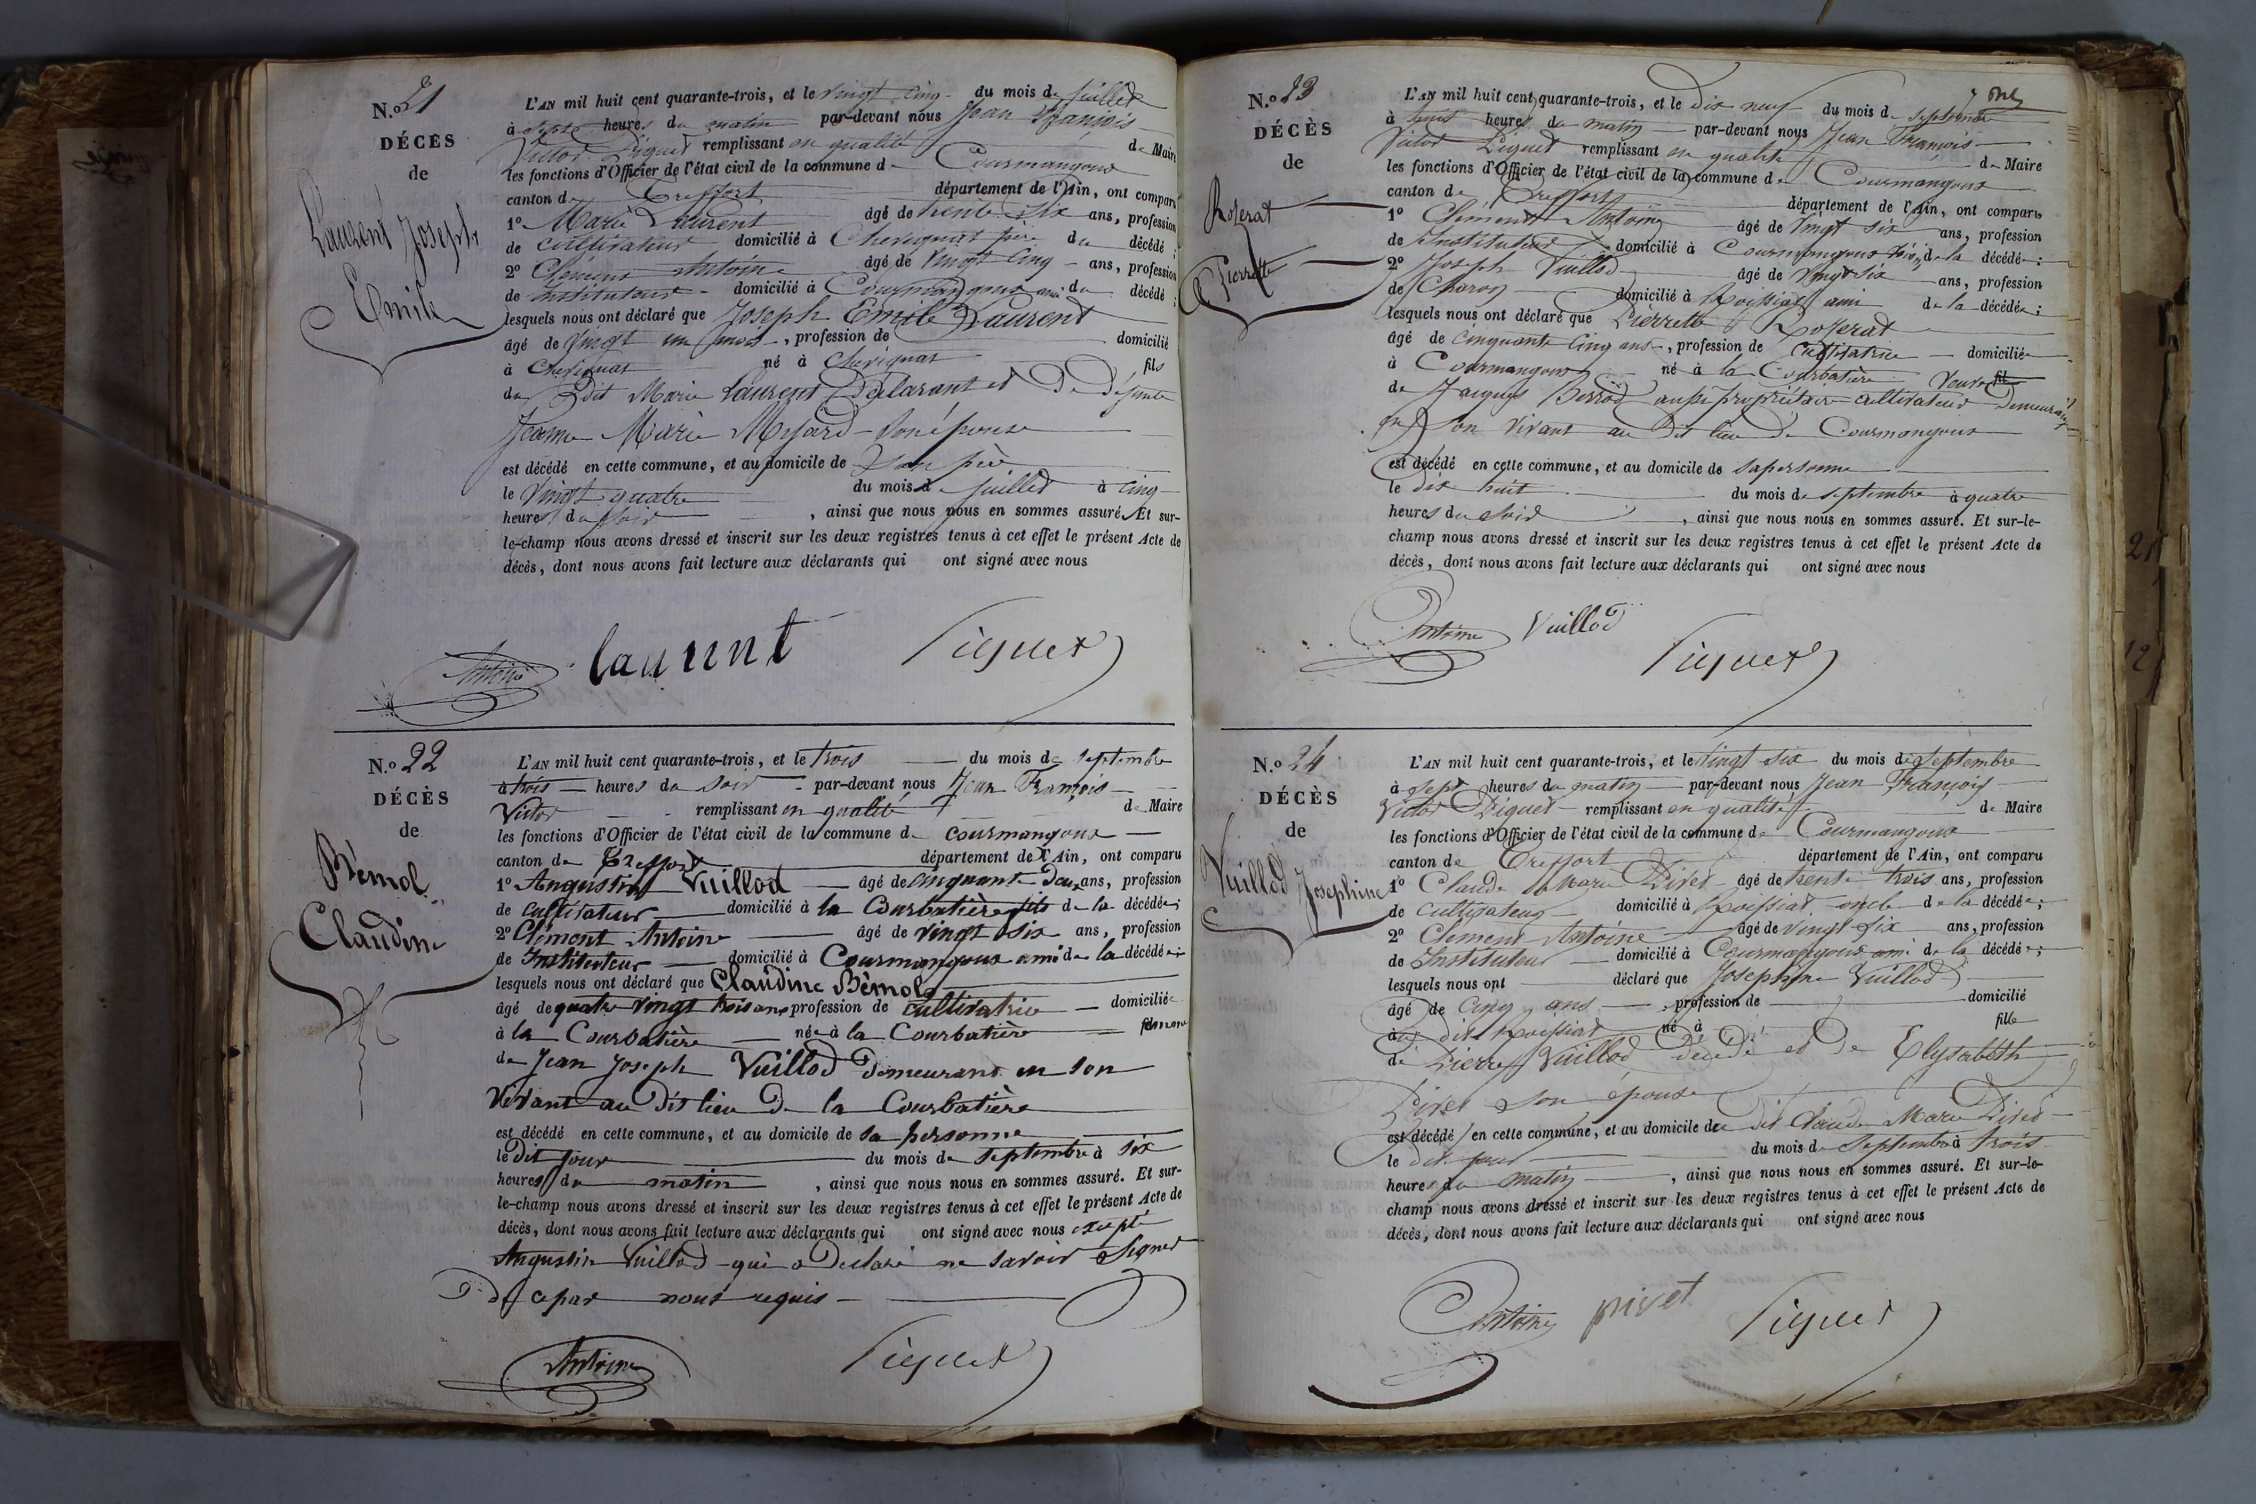 N.o 21
DÉCÈS
de
Laurent Joseph
Emile
L'AN mil huit cent quarante-trois, et le vingt cinq du mois de juillet
à sept heures du matin par-devant nous Jean François
Victor Piquet remplissant en qualité de Maire
les fonctions d'Officier de l'état civil de la commune de Courmangoux
canton de Treffort département de l'Ain, ont comparu
1o Marie Laurent âgé de trente six ans, profession
de cultivateur domicilié à Chevignat père du décédé;
2o Clément Antoine âgé de vingt cinq ans, profession
de Instituteur domicilié à Courmangoux ami du décédé;
lesquels nous ont déclaré que Joseph Emile Laurent
âgé de vingt un mois, profession de domicilié
à Chevignat né à Chevignat fils
du dit Marie Laurent Délarant et de défunte
Jeanne Marie son épouse
est décédé en cette commune, et au domicile de son père
le vingt quatre du mois de juillet à cinq
heures du soir, ainsi que nous nous en sommes assuré. Et sur-
le-champ nous avons dressé et inscrit sur les deux registres tenus à cet effet le présent Acte de
décès, dont nous avons fait lecture aux déclarants qui ont signé avec nous
Antoine laurent Piquet
N.o 22
DÉCÈS
de
Bèmol
Claudine
L'AN mil huit cent quarante-trois, et le trois du mois de septembre
à trois heures du soir par-devant nous Jean François
Victor remplissant en qualité de Maire
les fonctions d'Officier de l'état civil de la commune de courmangoux
canton de Treffort département de l'Ain, ont comparu
1o Augustin Vuillod âgé de cinquante deux ans, profession
de cultivateur domicilié à la Courbatière fils de la décédée;
2o Clément Antoine âgé de vingt six ans, profession
de Instituteur domicilié à Courmangoux ami de la décédée;
lesquels nous ont déclaré que Claudine Bèmol
âgé de quatre vingt trois ans profession de cultivatrice domiciliée
à la Courbatière née à la Courbatière
de Jean Joseph Vuillod demeurant en son
vivant au dit lieu de la Courbatière
est décédé en cette commune, et au domicile de sa personne
le dit jour du mois de septembre à six
heures du matin, ainsi que nous nous en sommes assuré. Et sur-
le-champ nous avons dressé et inscrit sur les deux registres tenus à cet effet le présent Acte de
décès, dont nous avons fait lecture aux déclarants qui ont signé avec nous excepté
Augustin Vuillod qui a déclaré ne savoir signer
de ce par nous requis
Antoine Piquet
N.o 23
DÉCÈS
de
Rozerat
Pierrette
L'AN mil huit cent quarante-trois, et le dix neuf du mois de septembre
à huit heures du matin par-devant nous Jean François
Victor Piquet remplissant en qualité de Maire
les fonctions d'Officier de l'état civil de la commune de Courmangoux
canton de Treffort département de l'Ain, ont comparu
1o Clément Antoine âgé de vingt six ans, profession
de Instituteur domicilié à Courmangoux de la décédée;
2o Joseph Vuillod âgé de vingt six ans, profession
de Charon domicilié à Roissiat ami de la décédée;
lesquels nous ont déclaré que Pierrette Rozerat
âgé de cinquante cinq ans, profession de cultivatrice domiciliée
à Courmangoux né à la Courbatière veuve
de Jacques Berrod aussi propriétaire cultivateur demeurant
en son vivant au dit lieu de Courmangoux
est décédé en cette commune, et au domicile de sa personne
le dix huit du mois de septembre à quatre
heures du soir, ainsi que nous nous en sommes assuré. Et sur-le-
champ nous avons dressé et inscrit sur les deux registres tenus à cet effet le présent Acte de
décès, dont nous avons fait lecture aux déclarants qui ont signé avec nous
Antoine Vuillod
Piquet
N.o 24
DÉCÈS
de
Vuillod Josephine
L'AN mil huit cent quarante-trois, et le vingt six du mois de septembre
à sept heures du matin par-devant nous Jean François
Victor Piquet remplissant en qualité de Maire
les fonctions d'Officier de l'état civil de la commune de Courmangoux
canton de Treffort département de l'Ain, ont comparu
1o Claude Marie Pivet âgé de trente trois ans, profession
de cultivateur domicilié à Roissiat oncle de la décédée;
2o Clément Antoine âgé de vingt six ans, profession
de Instituteur domicilié à Courmangoux ami de la décédée;
lesquels nous ont déclaré que Josephine Vuillod
âgé de cinq ans, profession de domicilié
au dit Roissiat né à fille
de Pierre Vuillod décédé et de Elysabeth
Pivet son épouse
est décédé en cette commune, et au domicile du dit Claude Marie Pivet
le dit jour du mois de septembre à trois
heures du matin, ainsi que nous nous en sommes assuré. Et sur-le-
champ nous avons dressé et inscrit sur les deux registres tenus à cet effet le présent Acte de
décès, dont nous avons fait lecture aux déclarants qui ont signé avec nous
Antoine pivet Piquet